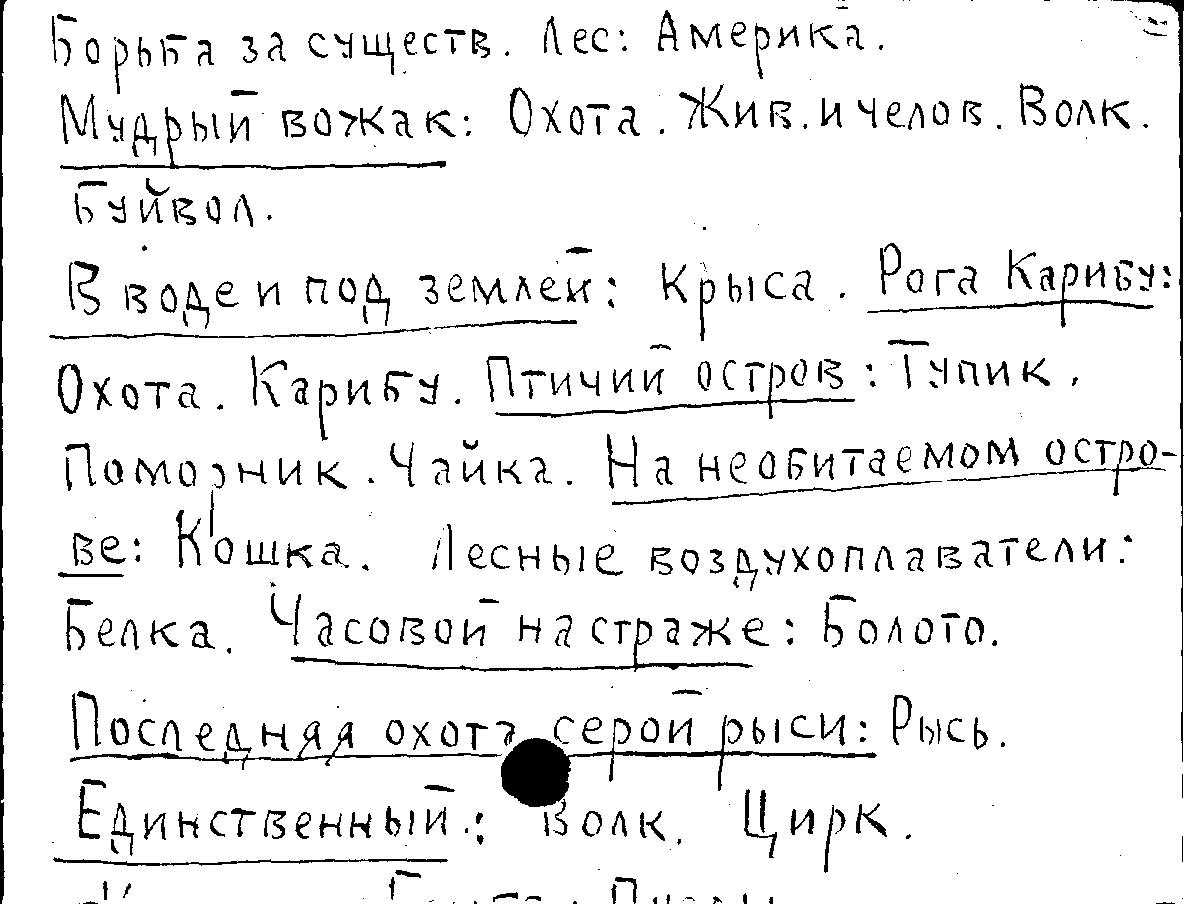 Борьба за существ. Лес: Америка.
Мудрый вожак: Охота. Жив. и челов. Волк.
Буйвол.
В воде и под землей: Крыса. Рога Карибу:
Охота. Карибу. Птичий остров: Тупик.
Поморник. Чайка. На необитаемом остро-
ве: Кошка. Лесные воздухоплаватели:
Белка. Часовой на страже: Болото.
Последняя охота серой рыси: Рысь.
Единственный: Волк. Цирк.